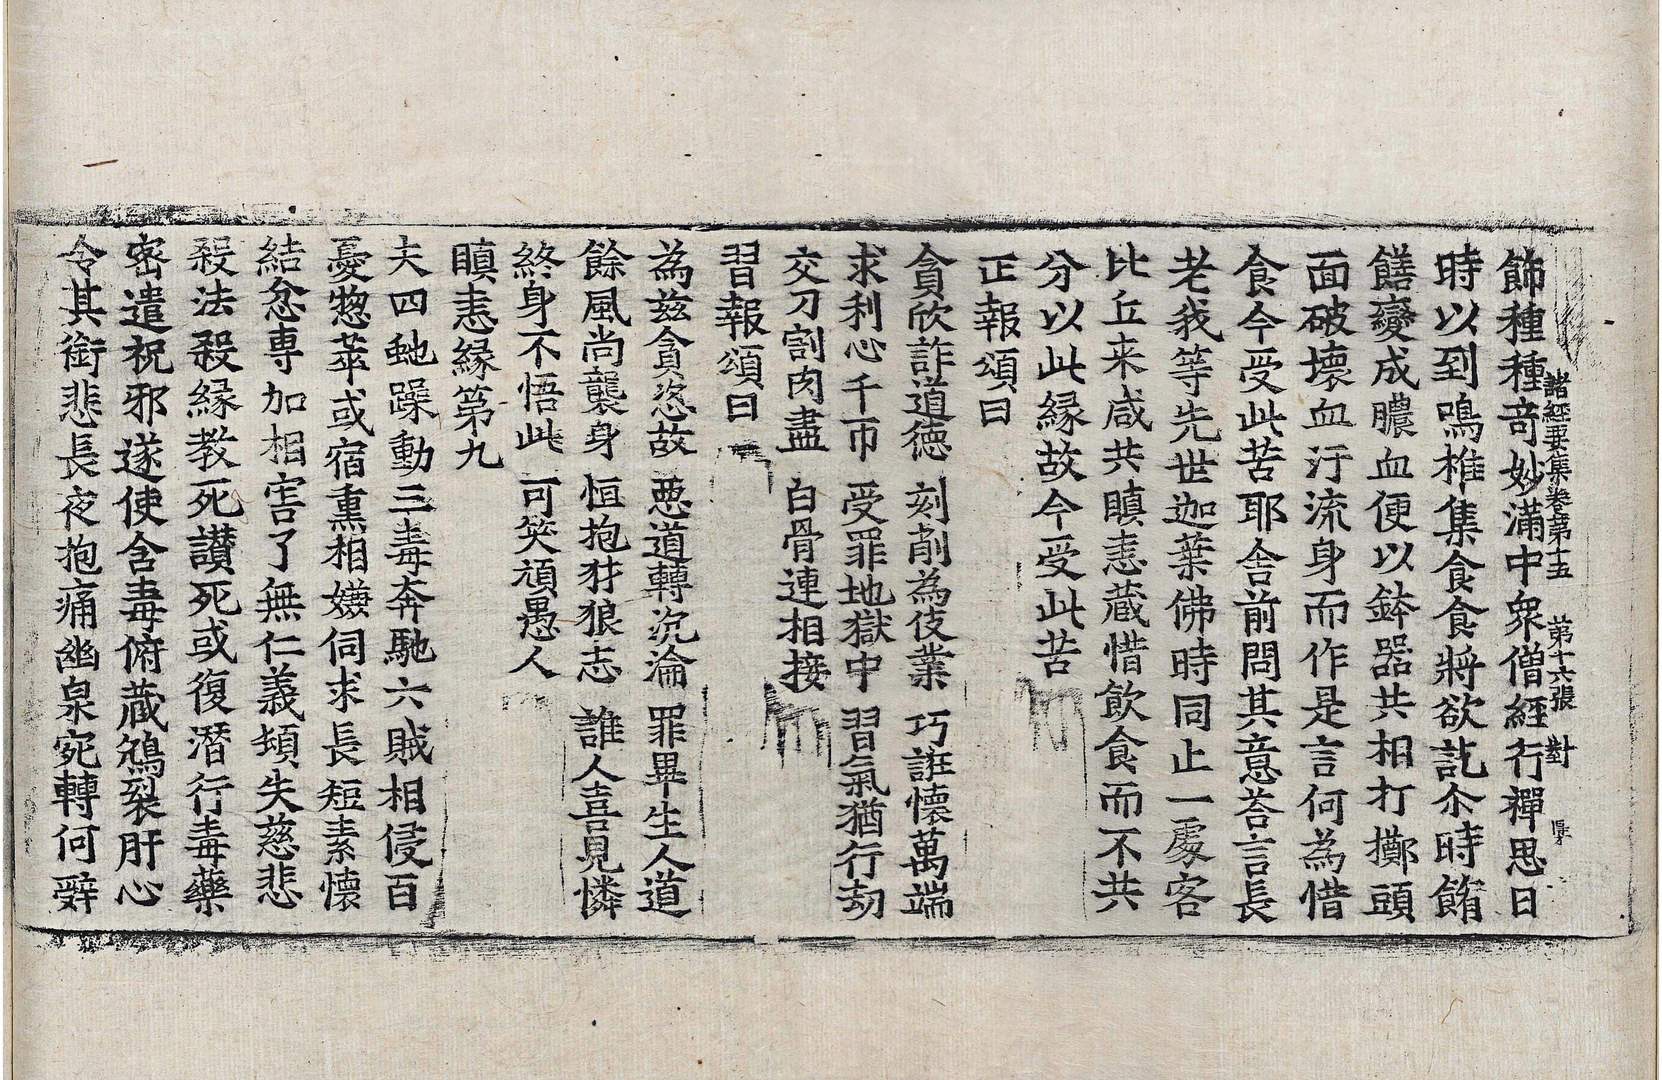 諸經要集卷第十五 第十六張 對
飾種種奇妙滿中衆僧經行禪思日
時以到鳴椎集食食將欲訖尒時餚
饍變成膿血便以鉢器共相打擲頭
面破壞血汙流身而作是言何為惜
食今受此苦耶舍前問其意荅言長
老我等先世迦葉佛時同止一處客
比丘来咸共瞋恚蔵惜飲食而不共
分以此縁故今受此苦
正報頌曰
貪欣詐道徳 刻削為伎業 巧誑懷萬端
求利心千帀 受罪地獄中 習氣猶行劫
交刀割肉盡 白骨連相接
習報頌曰
為兹貪恣故 惡道轉沉淪 罪畢生人道
餘風尚襲身 恒抱犲狼志 誰人喜見憐
終身不悟此 可笑頑愚人
瞋恚縁第九
夫四虵躁動三毒奔馳六賊相侵百
憂惣萃或宿熏相嫌伺求長短素懐
結忿専加相害了無仁義頓失慈悲
殺法殺縁教死讃死或復潜行毒藥
密遣祝邪遂使含毒俯蔵鴆裂肝心
令其銜悲長夜抱痛幽泉宛轉何辤